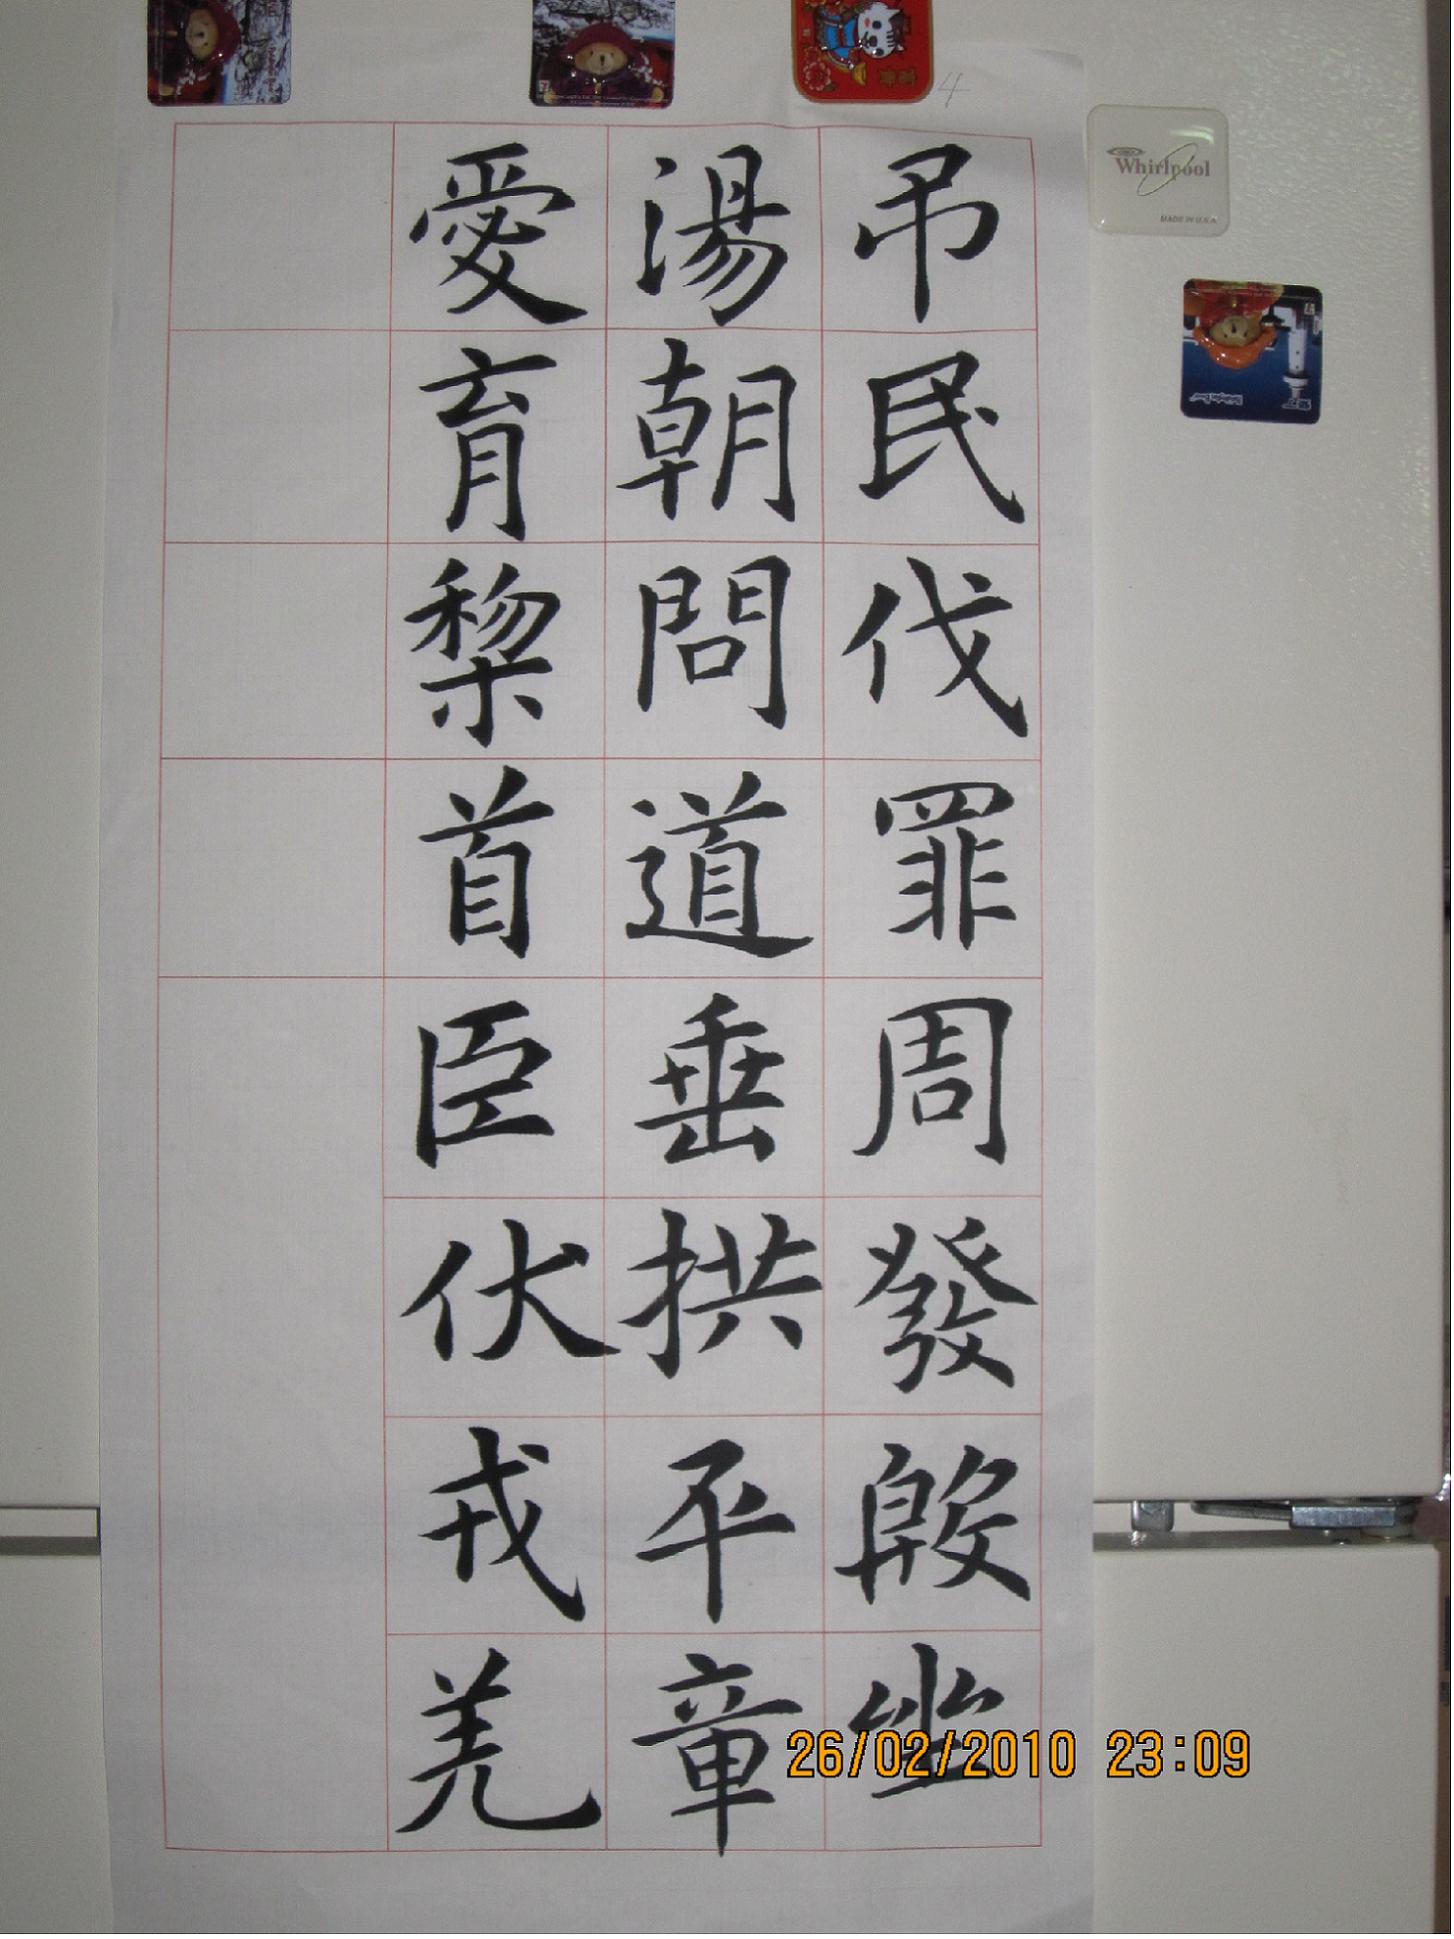 吊民伐罪周發殷坐
湯朝問道垂拱平章
愛育黎首臣伏戎羌
4
Whirlpool
MADE IN U.S.A.
26/02/2010 23:09